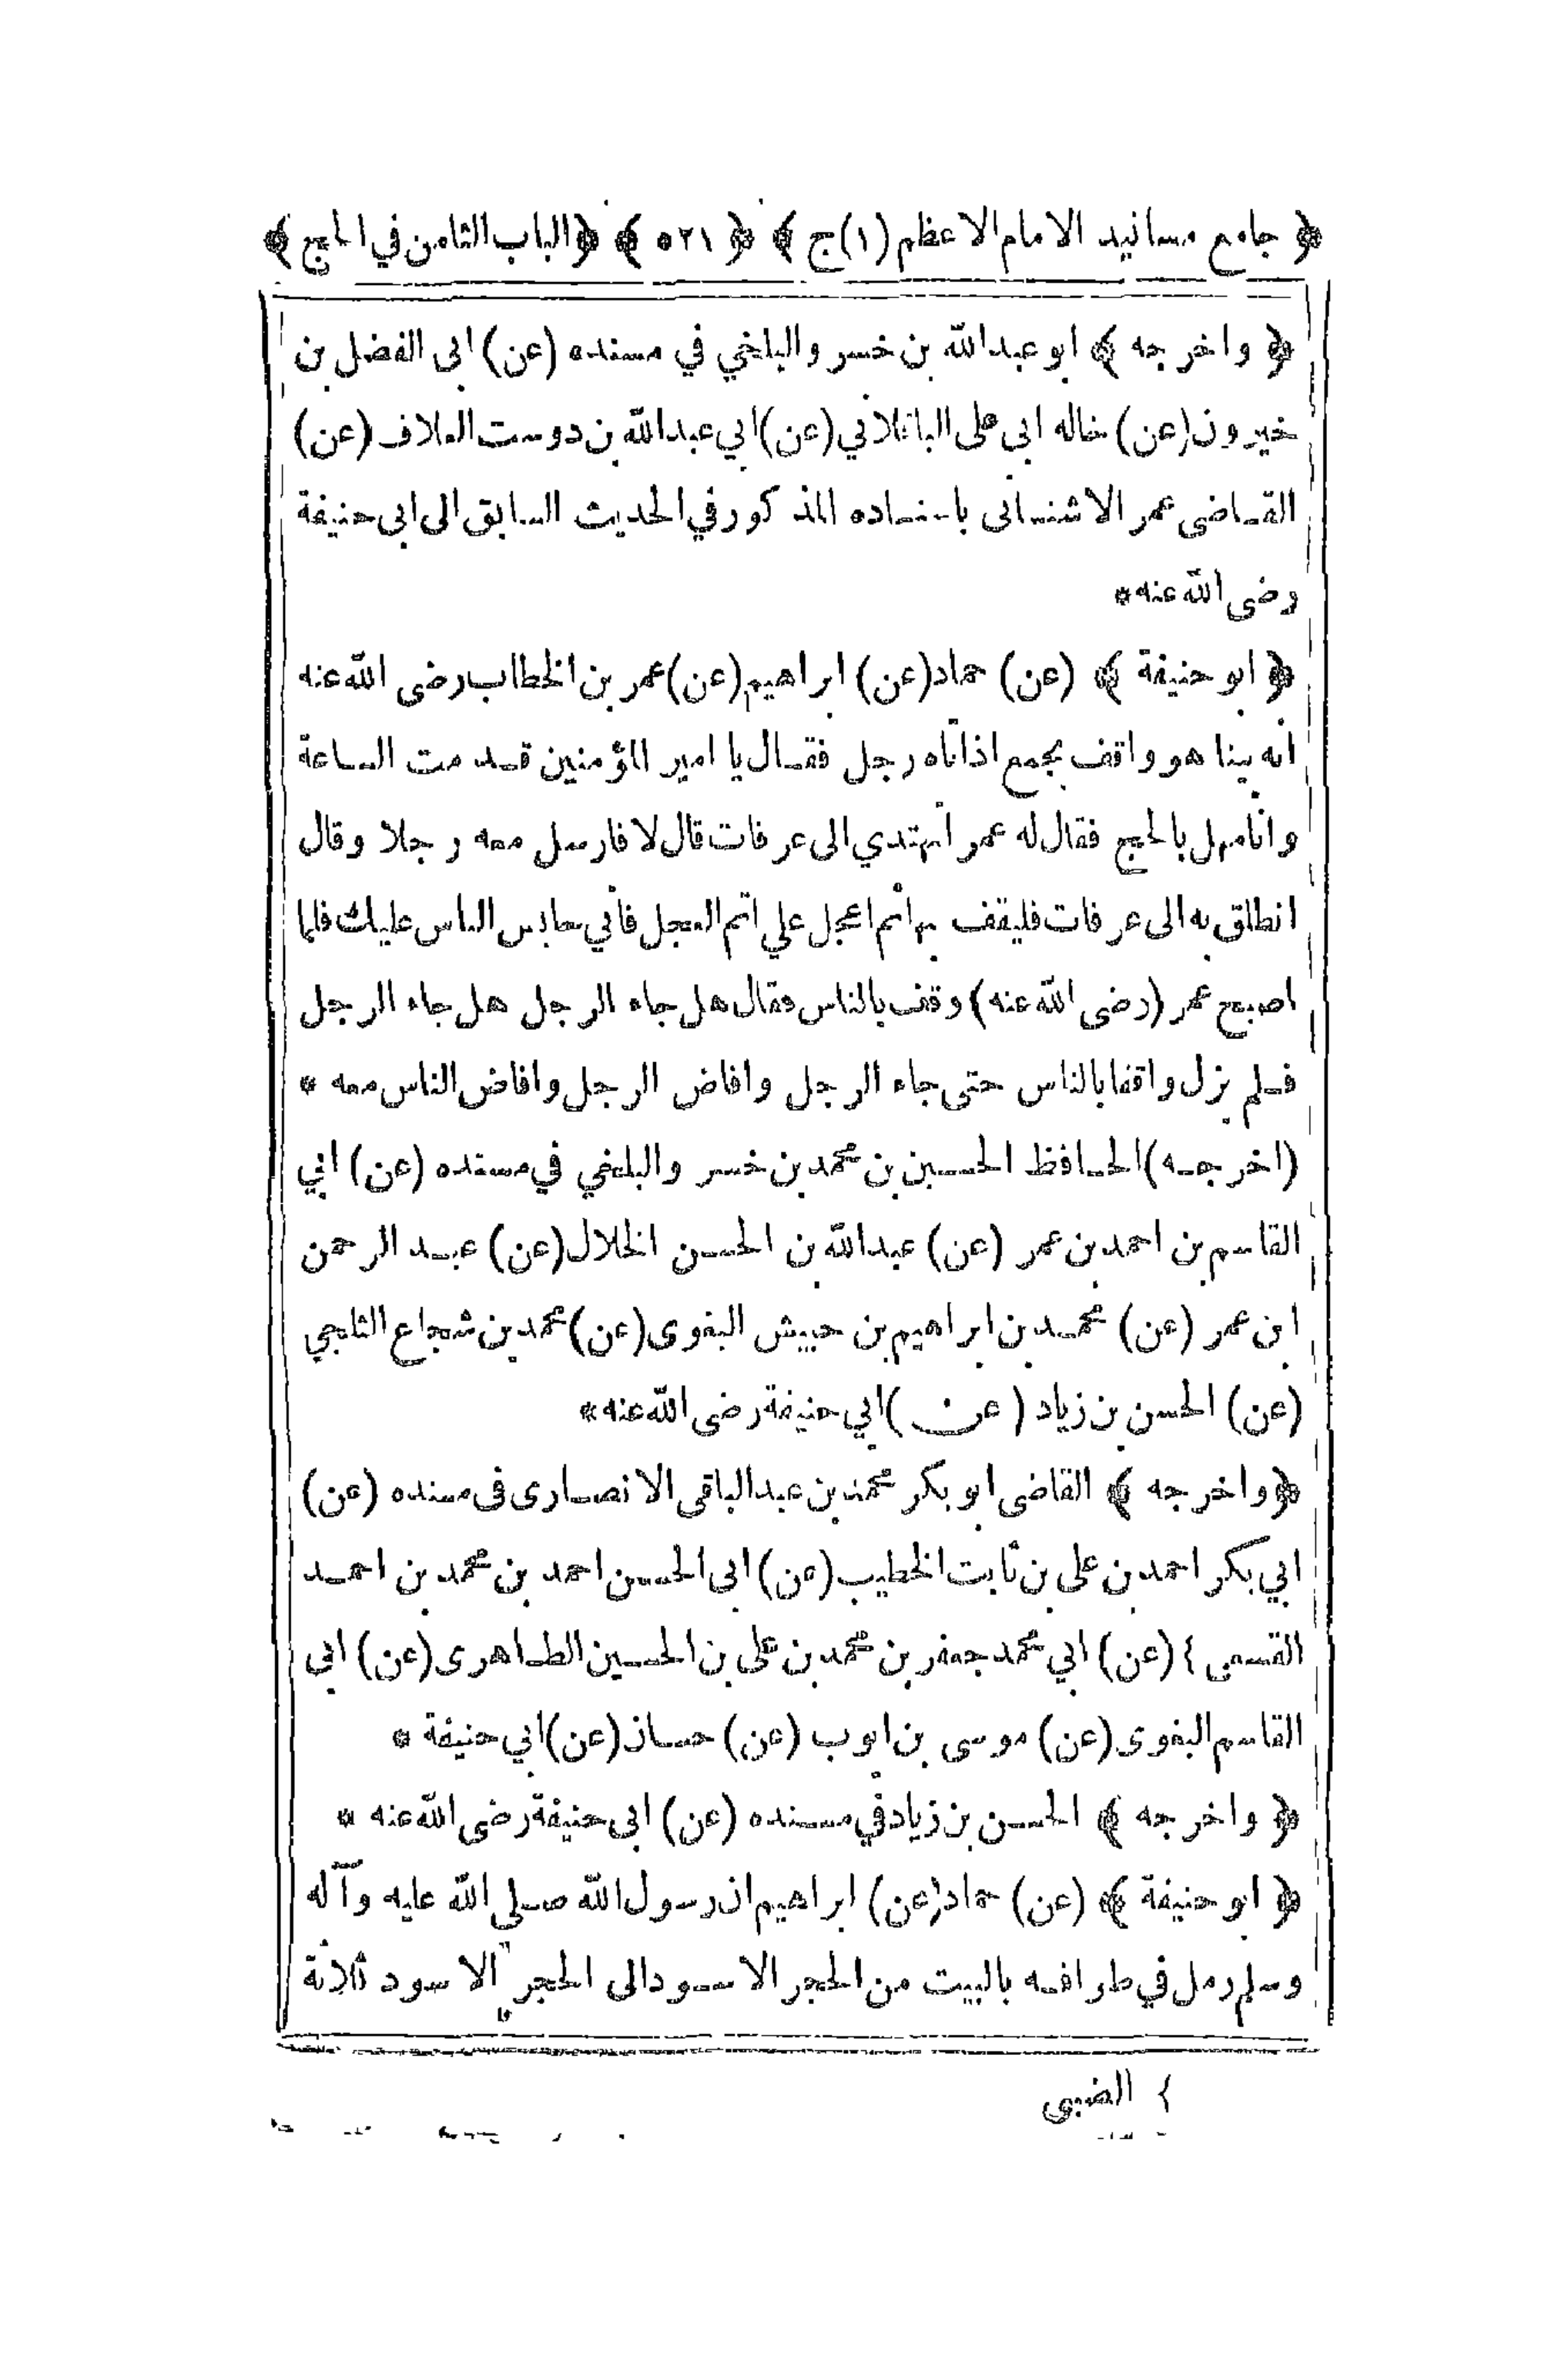 ﴿ جامع مسانيد الامام الاعظم (١) ج ﴾ ﴿ ٥٢١ ﴾ ﴿ الباب الثامن في الحج ﴾
﴿ واخرجه ﴾ ابو عبدالله بن خسرو البلخي في مسنده (عن) ابى الفضل بن
خيرون (عن) خاله ابى على الباقلاني (عن) ابي عبدالله بن دوست العلاف (عن)
القاضى عمر الاشنانى باسناده المذكور في الحديث السابق الى ابى حنيفة
رضى الله عنه *
﴿ ابو حنيفة ﴾ (عن) حماد (عن) ابراهيم (عن) عمر بن الخطاب رضى الله عنه
انه بينا هو واقف بجمع اذ اتاه رجل فقال يا امير المؤمنين قدمت الساعة
وانا مهل بالحج فقال له عمر أتهتدي الى عرفات قال لا فارسل معه رجلا وقال
انطلق به الى عرفات فليقف بها ثم اعجل علي ثم العجل فأني حابس الناس عليك فلما
اصبح عمر (رضى الله عنه) وقف بالناس فقال هل جاء الرجل هل جاء الرجل
فلم يزل واقفا بالناس حتى جاء الرجل وافاض الرجل وافاض الناس معه *
(اخرجه) الحافظ الحسين بن محمد بن خسرو البلخي في مسنده (عن) ابي
القاسم بن احمد بن عمر (عن) عبدالله بن الحسن الخلال (عن) عبد الرحمن
ابن عمر (عن) محمد بن ابراهيم بن حبيش البغوى (عن) محمد بن شجاع الثلجي
(عن) الحسن بن زياد (عن) ابي حنيفة رضى الله عنه *
﴿ واخرجه ﴾ القاضى ابو بكر محمد بن عبدالباقى الانصارى فى مسنده (عن)
ابي بكر احمد بن على بن ثابت الخطيب (عن) ابى الحسن احمد بن محمد بن احمد
القسمى } (عن) ابي محمد جعفر بن محمد بن على بن الحسين الطاهرى (عن) ابى
القاسم البغوى (عن) موسى بن ايوب (عن) حسان (عن) ابي حنيفة *
﴿ واخرجه ﴾ الحسن بن زياد في مسنده (عن) ابى حنيفة رضى الله عنه *
﴿ ابو حنيفة ﴾ (عن) حماد (عن) ابراهيم ان رسول الله صلى الله عليه وآله
وسلم رمل في طوافه بالبيت من الحجر الاسود الى الحجر الاسود ثلاثة
} الضبى